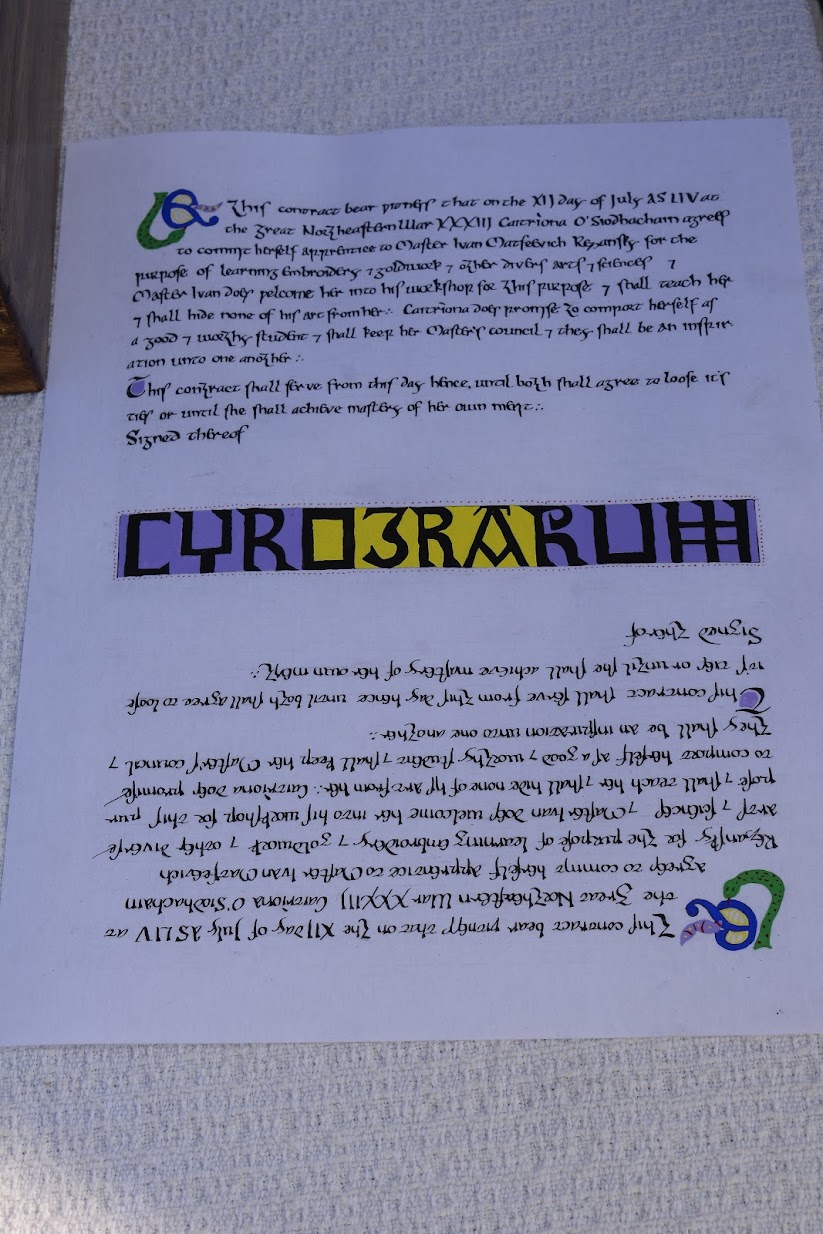 This contract bear witness that on the XIJ day of July AS LIV at
the Great Northeastern War XXXIIJ Caitriona O'Siodhacháin agrees
to commit herself apprentice to Master Ivan Matfeevich Rezansky for the
purpose of learning Embroidery ⁊ goldwork ⁊ other divers arts ⁊ sciences ⁊
Master Ivan does welcome her into his workshop for this purpose ⁊ shall teach her
⁊ shall hide none of his art from her∴ Caitriona does promise to comport herself as
a good ⁊ worthy student ⁊ shall keep her Master's council ⁊ they shall be an inspir
ation unto one another∴
This contract shall serve from this day hence, until both shall agree to loose it's
ties or until she shall achieve mastery of her own merit∴
Signed thereof
CYROGRARUM
This contract bear witness that on the XIJ day of July AS LIV at
the Great Northeastern War XXXIIJ Caitriona O'Siodhacháin
agrees to commit herself apprentice to Master Ivan Matfeevich
Rezansky for the purpose of learning embroidery ⁊ goldwork ⁊ other diverse
arts ⁊ sciences ⁊ Master Ivan does welcome her into his workshop for this pur
pose ⁊ shall teach her ⁊ shall hide none of his art from her∴ Caitriona does promise
to comport herself as a good ⁊ worthy student ⁊ shall keep her Master's council ⁊
They shall be an inspiration unto one another∴
This contract shall serve from this day hence until both shall agree to loose
it's ties or until she shall achieve mastery of her own merit∴
Signed thereof